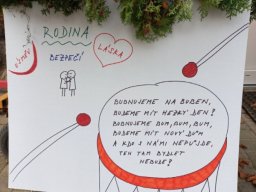 RODINA
LÁSKA
BEZPEČÍ
BUBNUJEME NA BUBEN,
BUDEME MÍT HEZKÝ DEN!
BUBNUJEME BUM, BUM, BUM,
BUDEME MÍT NOVÝ DŮM
A KDO S NÁMI NEPŮJDE,
TEN TAM BYDLET
NEBUDE!